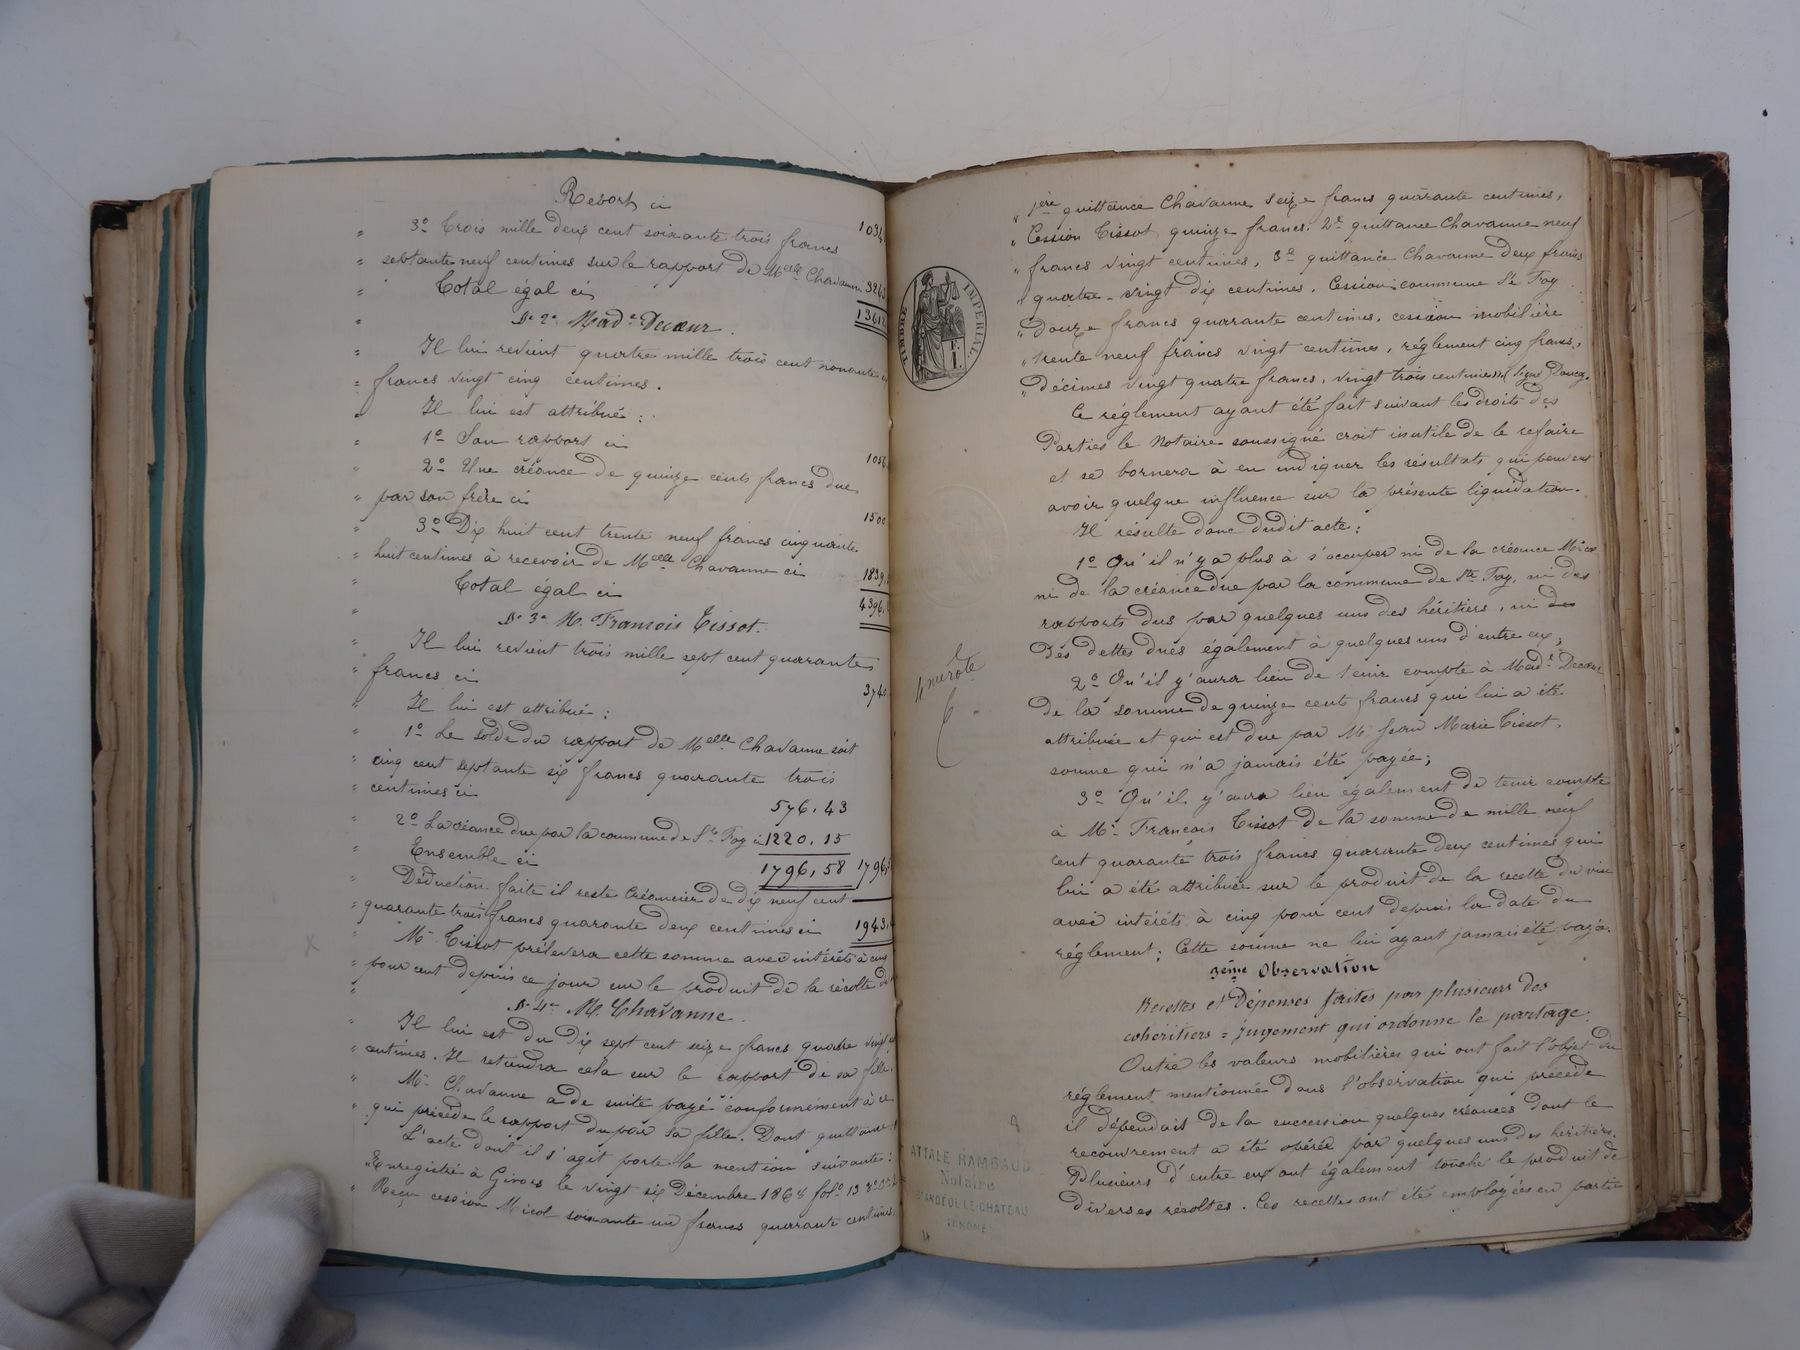 Report ci 1034
" 3° Trois mille deux cent soixante trois francs
" septante neuf centimes sur le rapport de Melle Chavanne 3263
" Total égal ci 1361
" N° 2° Made Decoeur.
" Il lui revient quatre mille trois cent nonante
" francs vingt cinq centimes.
" Il lui est attribué :
" 1° Son rapport ci 1056
" 2° Une créance de quinze cents francs due
" par son frère ci 1500
" 3° Dix huit cent trente neuf francs cinquante
" huit centimes à recevoir de Melle Chavanne ci 1839
" Total égal ci 4396
" N° 3° M. François Tissot.
" Il lui revient trois mille sept cent quarante
" francs ci 3740
" Il lui est attribué :
" 1° Le solde du rapport de Melle Chavanne soit
" cinq cent septante six francs quarante trois
" centimes ci 576,43
" 2° La céance due par la commune de Ste Foy ci 1220,15
" Ensemble ci 1796,58 1796,
" Déduction faite il reste créancier de dix neuf cent
" quarante trois francs quarante deux centimes ci 1943,
" Mr Tissot prélèvera cette somme avec intérêts à cinq
" pour cent depuis ce jour sur le produit de la récolte
" N° 4° M. Chavanne.
" Il lui est du dix sept cent seize francs quatre vingt
" centimes. Il retiendra cela sur le rapport de sa fille.
" Mr Chavanne a de suite payé conformément à ce
" qui précède le rapport du par sa fille. Dont quittance
L'acte dont il s'agit porte la mention suivante :
"Enregistré à Givors le vingt six Décembre 1868 fol° 13
" Reçu cession Micol soixante un francs quarante centimes,
" 1ère quittance Chavanne seize francs quarante centimes,
" Cession Tissot quinze francs, 2e quittance Chavanne neuf
" francs vingt centimes, 3e quittance Chavanne deux francs
" quatre-vingt dix centimes, Cession commune Ste Foy
" douze francs quarante centimes, cession mobilière
" trente neuf francs vingt centimes, réglement cinq francs,
" décimes vingt quatre francs, vingt trois centimes (Signé) Doucy.
Ce réglement ayant été fait suivant les droits des
Parties le Notaire soussigné croit inutile de le refaire
et se bornera à en indiquer les résultats qui peuvent
avoir quelque influence sur la présente liquidation.
Il résulte donc dudit acte :
1° Qu'il n'y a plus à s'occuper ni de la créance Micol
ni de la créance due par la commune de Ste Foy, ni des
rapports dus par quelques uns des héritiers, ni des
Dés dettes dués également à quelques uns d'entre eux;
2° Qu'il y aura lieu de tenir compte à Made Decoeur
de la somme de quinze cents francs qui lui a été
attribuée et qui est due par Mr Jean Marie Tissot,
somme qui n'a jamais été payée;
3° Qu'il y aura lieu également de tenir compte
à Mr François Tissot de la somme de mille neuf
cent quarante trois francs quarante deux centimes qui
lui a été attribuée sur le produit de la recette du vin
avec intérêts à cinq pour cent depuis la date du
réglement; Cette somme ne lui ayant jamais été payée.
3ème Observation
Recettes et Dépenses faites par plusieurs des
cohéritiers = Jugement qui ordonne le partage.
Outre les valeurs mobilières qui ont fait l'objet du
réglement mentionné dans l'observation qui précède
il dépendait de la succession quelques créances dont le
recouvrement a été opéré par quelques uns des héritiers.
Plusieurs d'entre eux ont également touché le produit de
diverses récoltes. Ces recettes ont été employées en partie
TIMBRE IMPÉRIAL
ATTALE RAMBAUD
Notaire
St ANDÉOL-LE-CHATEAU
(RHONE)